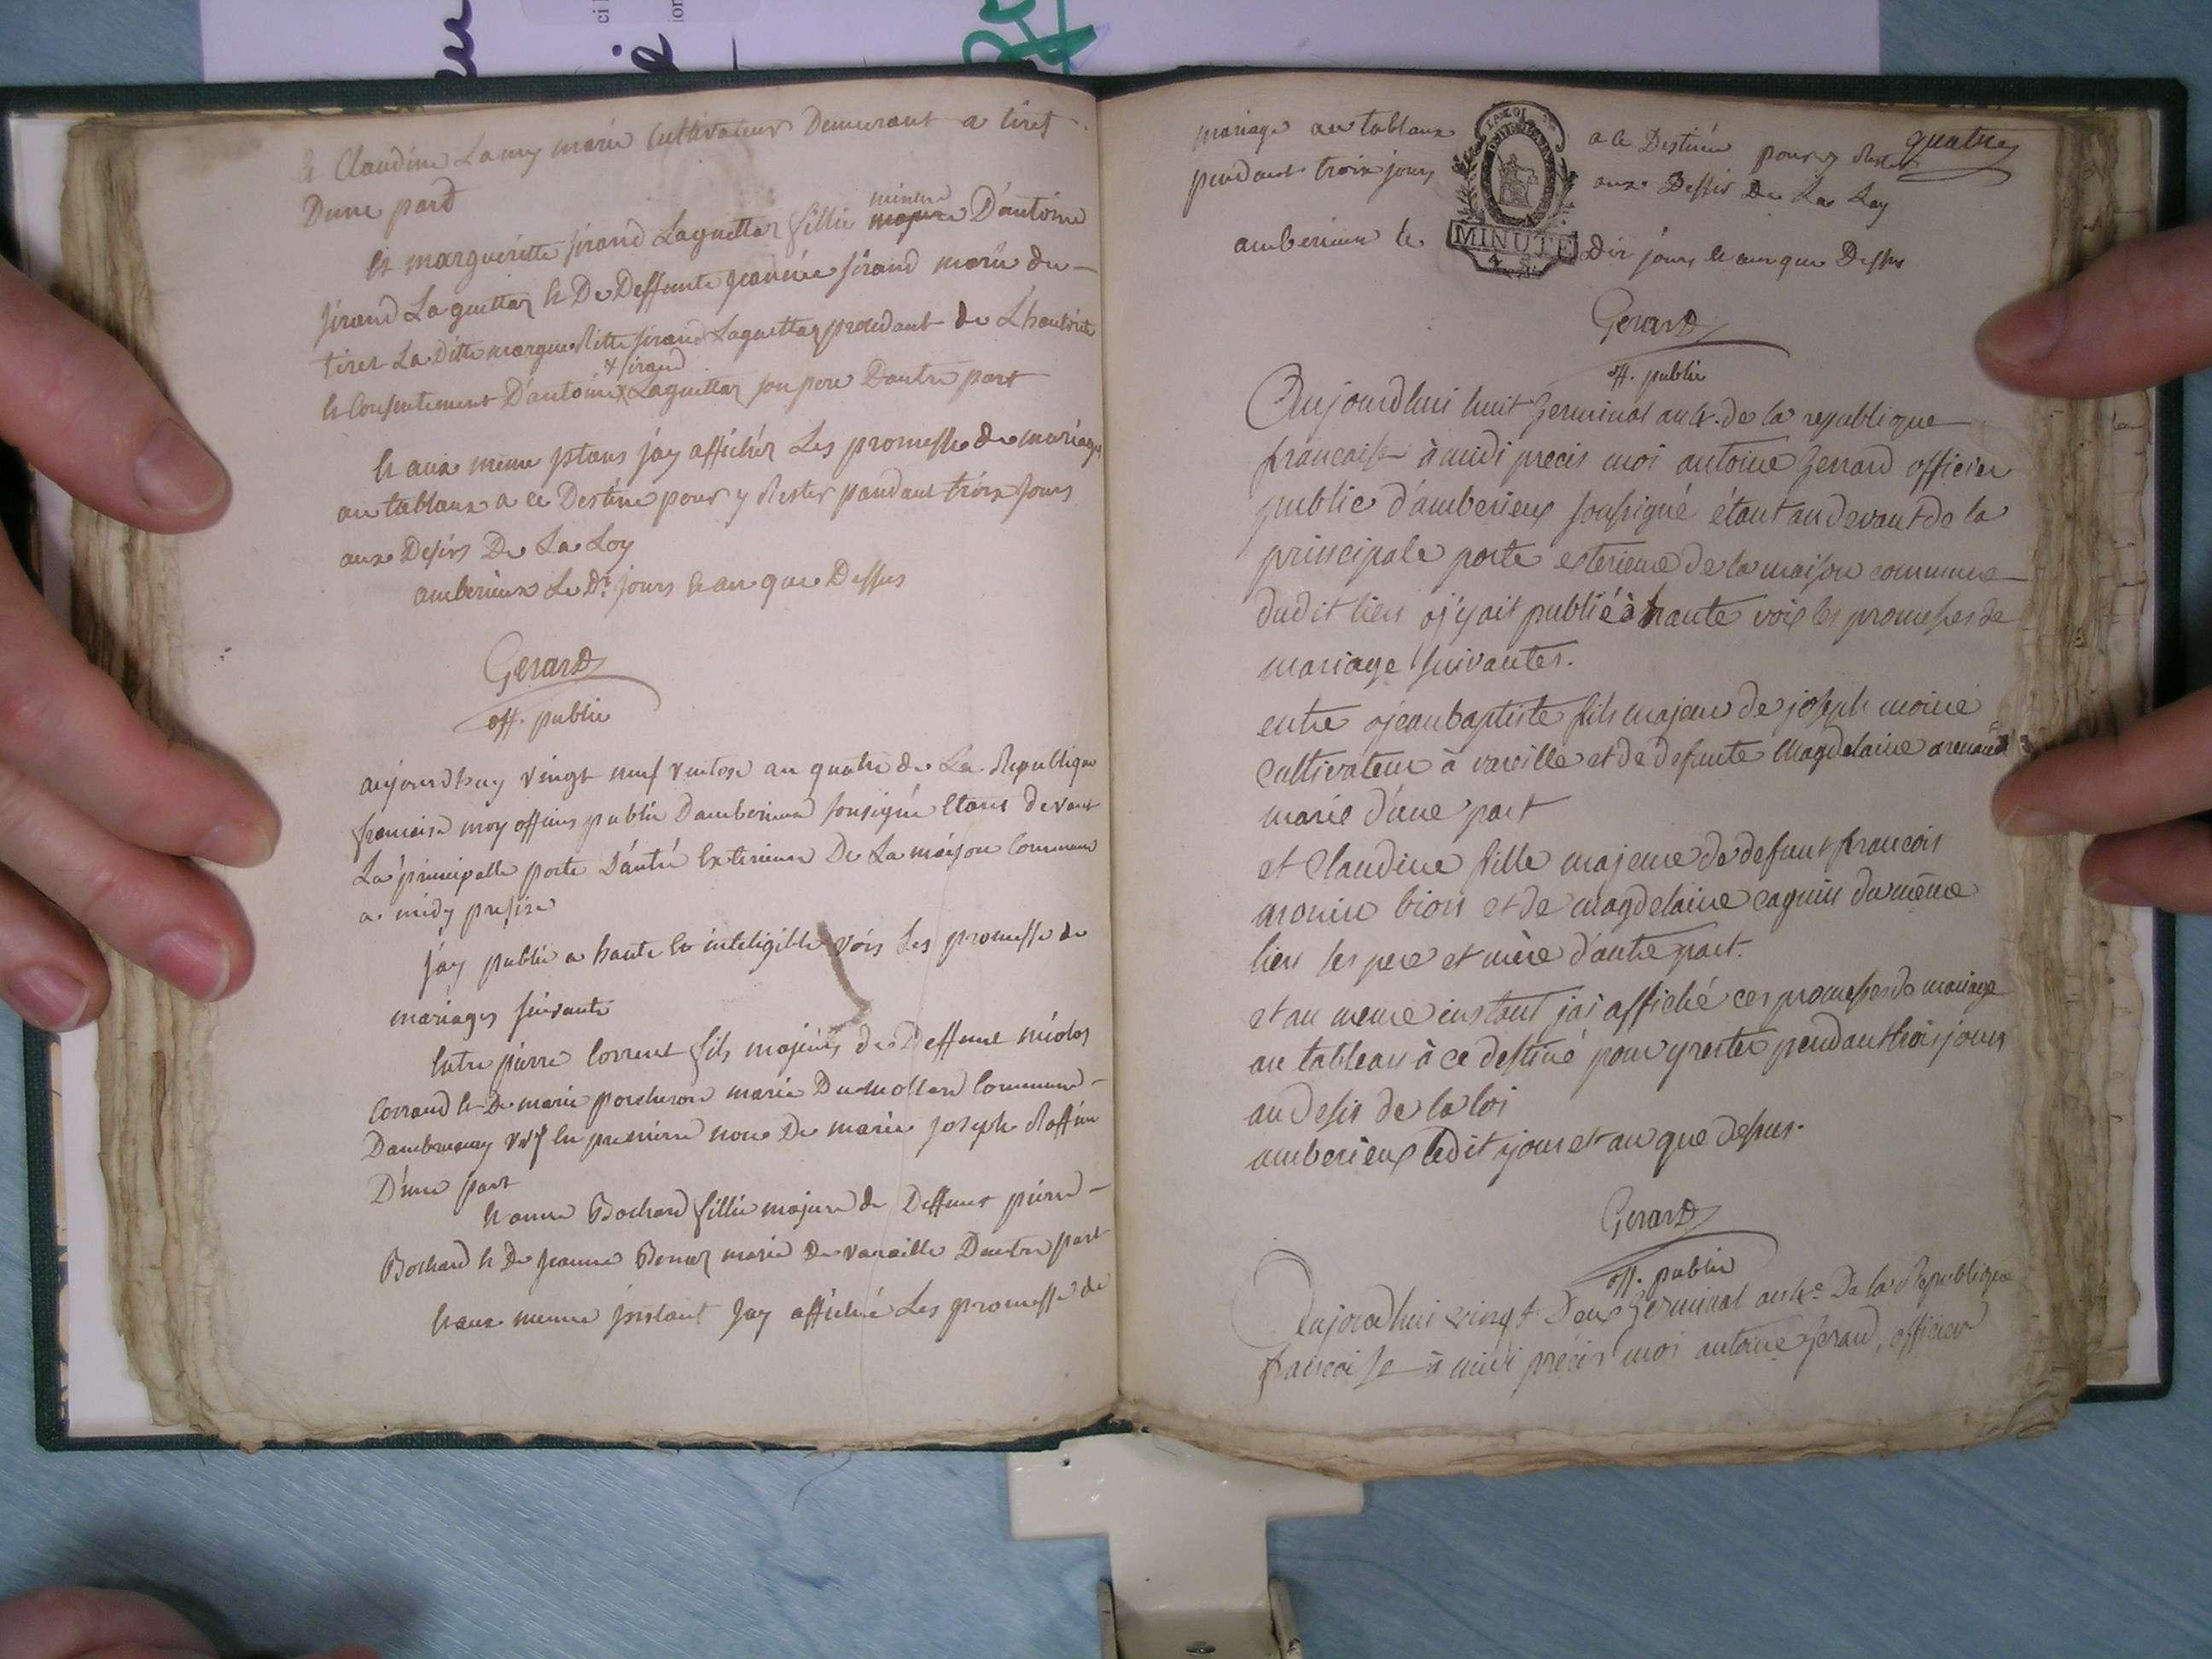 et Claudine Lamy marié Cultivateur Demeurant a tiret
Dune part
et margueritte sirand Laguettaz fillie mineure majeure D'antoine
sirand Laguettaz et De Deffunte jeannée sirand marié du
tiret La Ditte margueritte sirand Laguettaz procedant de Lhautorité
et Consentement D'antoine x sirand Laguettaz son pere Dautre part
et aux meme jstans jay affichéz Les promesse de mariages
au tableaux a ce Destiné pour y Rester pandant troix jours
aux Desirs De La Loy
amberieux Le Dt jours et an que Dessus
Gerard
off. public
aujourdhuy vingt neuf ventose an quatre de La Republique
francaise moy officier public Damberieux sousigné Etant devant
La principalle porte D'antré Exterieure De La maison Commune
a midy presise
jay publié a haute et inteligible vois Les promesse de
mariages suivante
Entre pierre Corrent fils majeurs de Deffunt nicolas
Corraud et De marie porcheron marié Du mollard Commune
Dambronay veuf En premiere noce De marie joseph Roffin
D'une part
et anne Bochard fillie majure de Deffunt pierre
Bochard et De jeanne Bonaz marié de varaille Dautre part
et aux meme jnstant jay affiché Les promesse de
quatre
mariage au tableaux a ce Destinée pour y Rester
pendant troix jours aux Dessir De La Loy
amberieux le Dit jours et an que Dessus
LA LOI
MINUTE
Gerard
off. public
Aujourdhui huit Germinal an 4e. de la republique
francaise à midi précis moi antoine Gerard officier
public d'amberieux soussigné étant au devant de la
principale porte exterieure de la maison commune
dudit lieu oj'y ait publié à haute voix les promesses de
mariage suivantes.
entre ojean baptiste fils majeur de joseph moine
Cultivateur à vareille et de defunte Magdelaine arenaud
marié d'une part
et Claudine fille majeure de defunt francois
monin bion et de magdelaine cagnin du même
lieu ses pere et mère d'autre part.
et au meme instant j'ai affiché ces promesses de mariage
au tableau à ce destiné pour y rester pendant trois jours
au desir de la loi
amberieux ledit jour et an que dessus.
Gerard
off. public
Aujourdhui vingt Deux Germinal an 4e De la Republique
francaise à midi précis moi antoine Gerard, officier